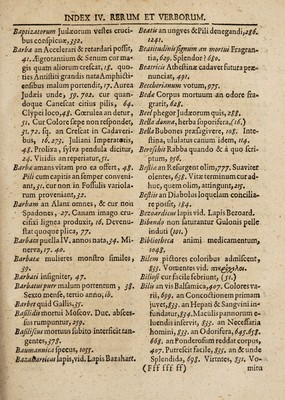 INDEX IV. RERUM ET VERBORUM.
Baptizatorum Judæorum vestes cruci-
bus conspicuæ, 330.
Barba an Accelerari & retardari possit,
41. Ægrotantium & Senum cur ma-
gis quam aliorum crescat, 38. quo-
ties Antistiti grandis nata Amphicti-
ensibus malum portendit, 17. Aurea
Judæis unde, 59. 702. cur quan-
doque Canescat citius pilis, 64.
Clypei loco, 48. Cœnulea an detur,
51. Cur Colore sæpe non respondeat,
31. 72. sq. an Crescat in Cadaveri-
bus, 16. 273. Juliani Imperatoris,
48. Prolixa, Sylva pendula dicitur,
24. Viridis an reperiatur, 51.
Barbæ amans vivam pro ea offert, 48.
Pili cum capitis an semper conveni-
ant, 31. cur non in Fossulis variola-
rum proveniant, 32.
Barbam an Alant omnes, & cur non
Spadones, 27. Canam imago cru-
cifixi lignea produxit, 16. Devene-
stat quoque plica, 77.
Barbata puella IV. annos nata, 34. Mi-
nerva, 17. 40.
Barbata mulieres monstro similes,
39.
Barbati insigniter, 47.
Barbatus puer malum portentum, 38.
Sexto mense, tertio anno, ib.
Barber quid Gallis, 51.
Basilidis mortui Moscov. Duc. absces-
sus rumpuntur, 259.
Basiliscus mortuus subito interficit tan-
gentes, 378.
Baumannica specus, 1055.
Bazaharticus lapis, vid. Lapis Bazahart.
Beatis an ungves & Pili denegandi, 286.
1241.
Beatitudinis signum an mortui Fragran-
tia, 629. Splendor? 680.
Beatricis Athestinæ cadaver futura præ-
nunciat, 491.
Beccherianum votum, 975.
Bedæ Corpus mortuum an odore fra-
graris, 628.
Beel phegor Judæorum quis, 288.
Bella donna, herba soporifera, 1165.
Bella Bubones præsagivere, 108. Inte-
stina, ululatus canum idem, 114.
Berosches Rabba quando & à quo scri-
ptum, 956.
Bestiæ an Resurgent olim, 777. Suaviter
olentes, 658. Vitæ terminum cur ad-
huc, quem olim, attingunt, 215.
Bestiis an Diabolus loquelam concilia-
re possit, 184.
Bezoardicus lapis vid. Lapis Bezoard.
Bibendo non saturantur Gulonis pelle
induti 1101.
Bibliotheca animi medicamentum,
1048.
Bilem pictores coloribus admiscent,
833. Vomentes vid.
Biliosis cur facile febriunt, 36.
Bilis an vis Balsamica, 407. Colores va-
rii, 809. an Concoctionem primam
juvet, 830. an Hepati & Sangvini in-
fundatur, 834. Maculis pannorum e-
luendis inservit, 833. an Necessaria
homini, 833. an Odorifera, 645. 658.
668. an Ponderosam reddat corpus,
407. Putrescit facile, 831. an & unde
Splendida, 698. Virtutes, 831. Vo-
(Fff fff ff) mitu